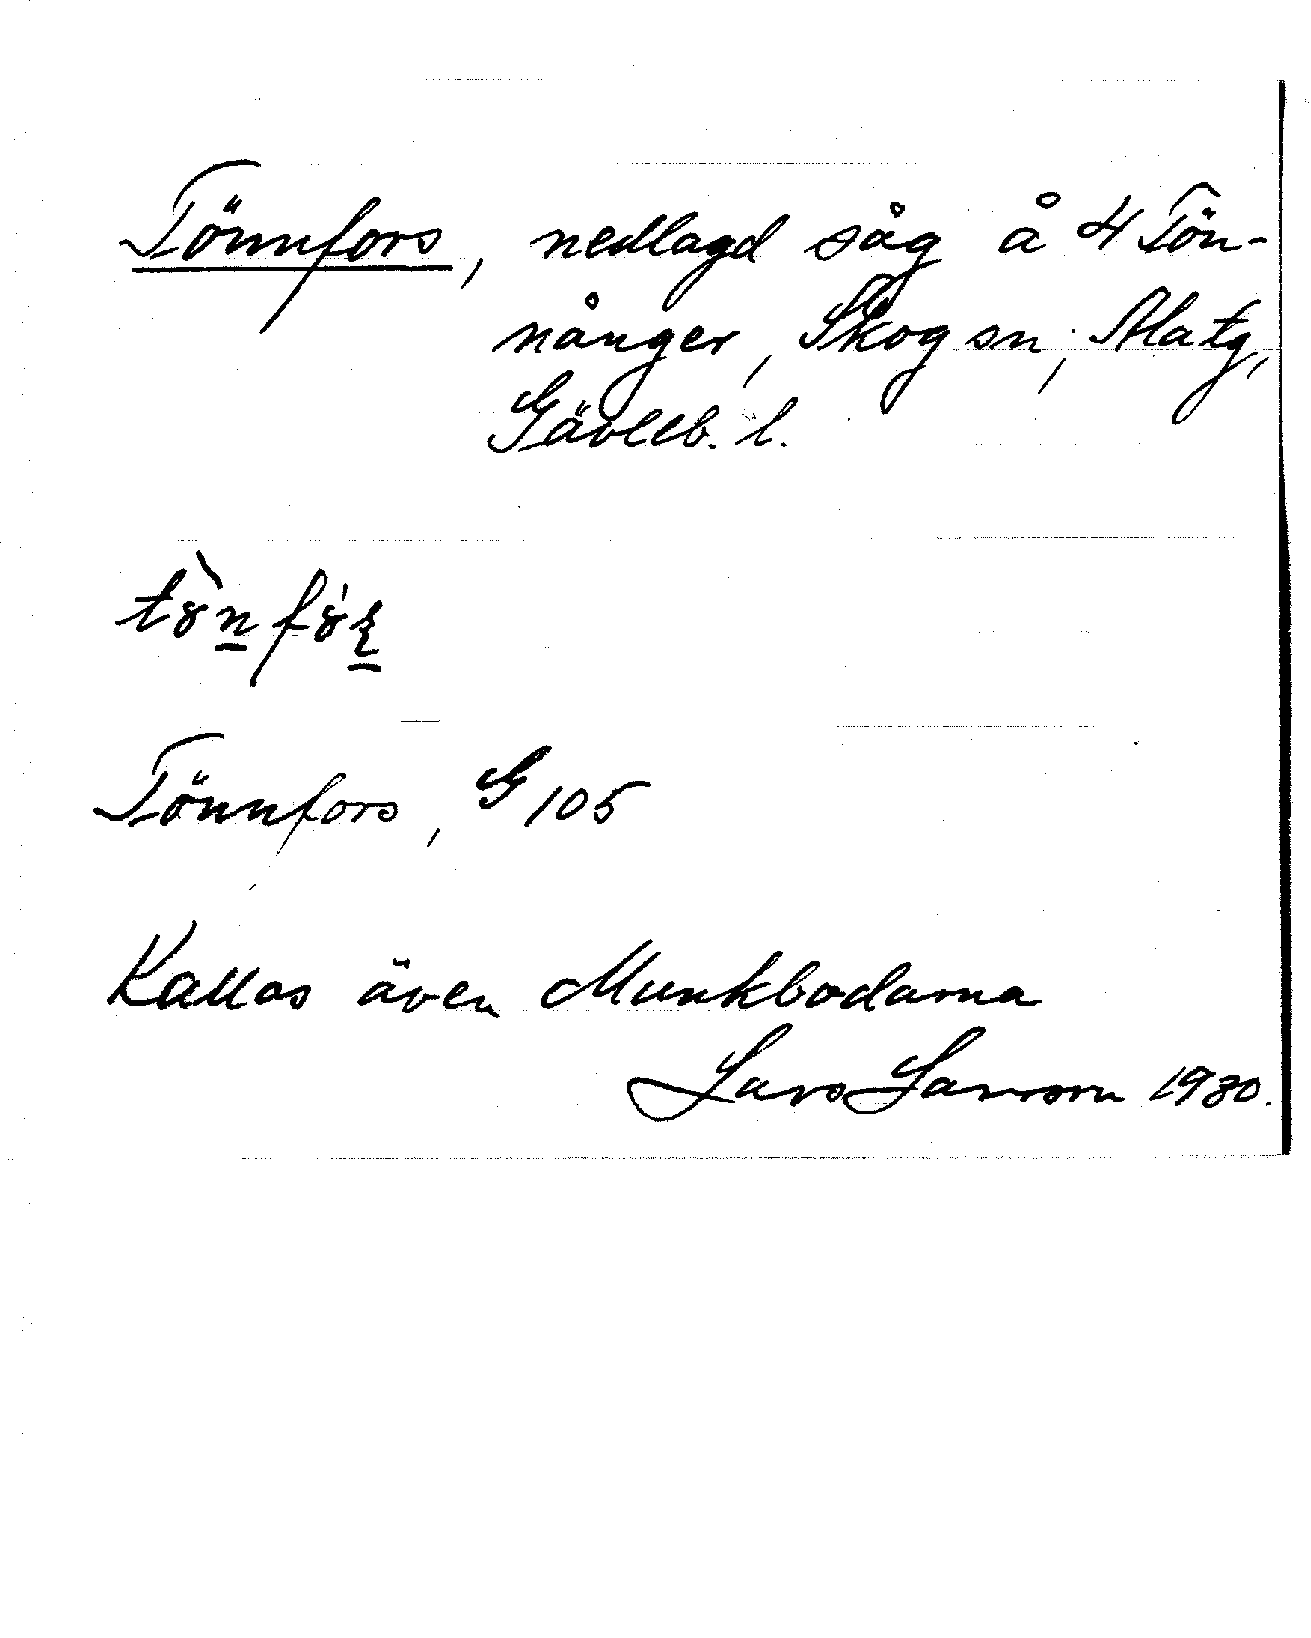 Tönnfors, nedlagd såg å 4 Tön-
nånger, Skog sn, Ala tg,
Gävleb. l.
Tönnfors, G 105
Kallas även Munkbodarna
Lars Larsson 1930.